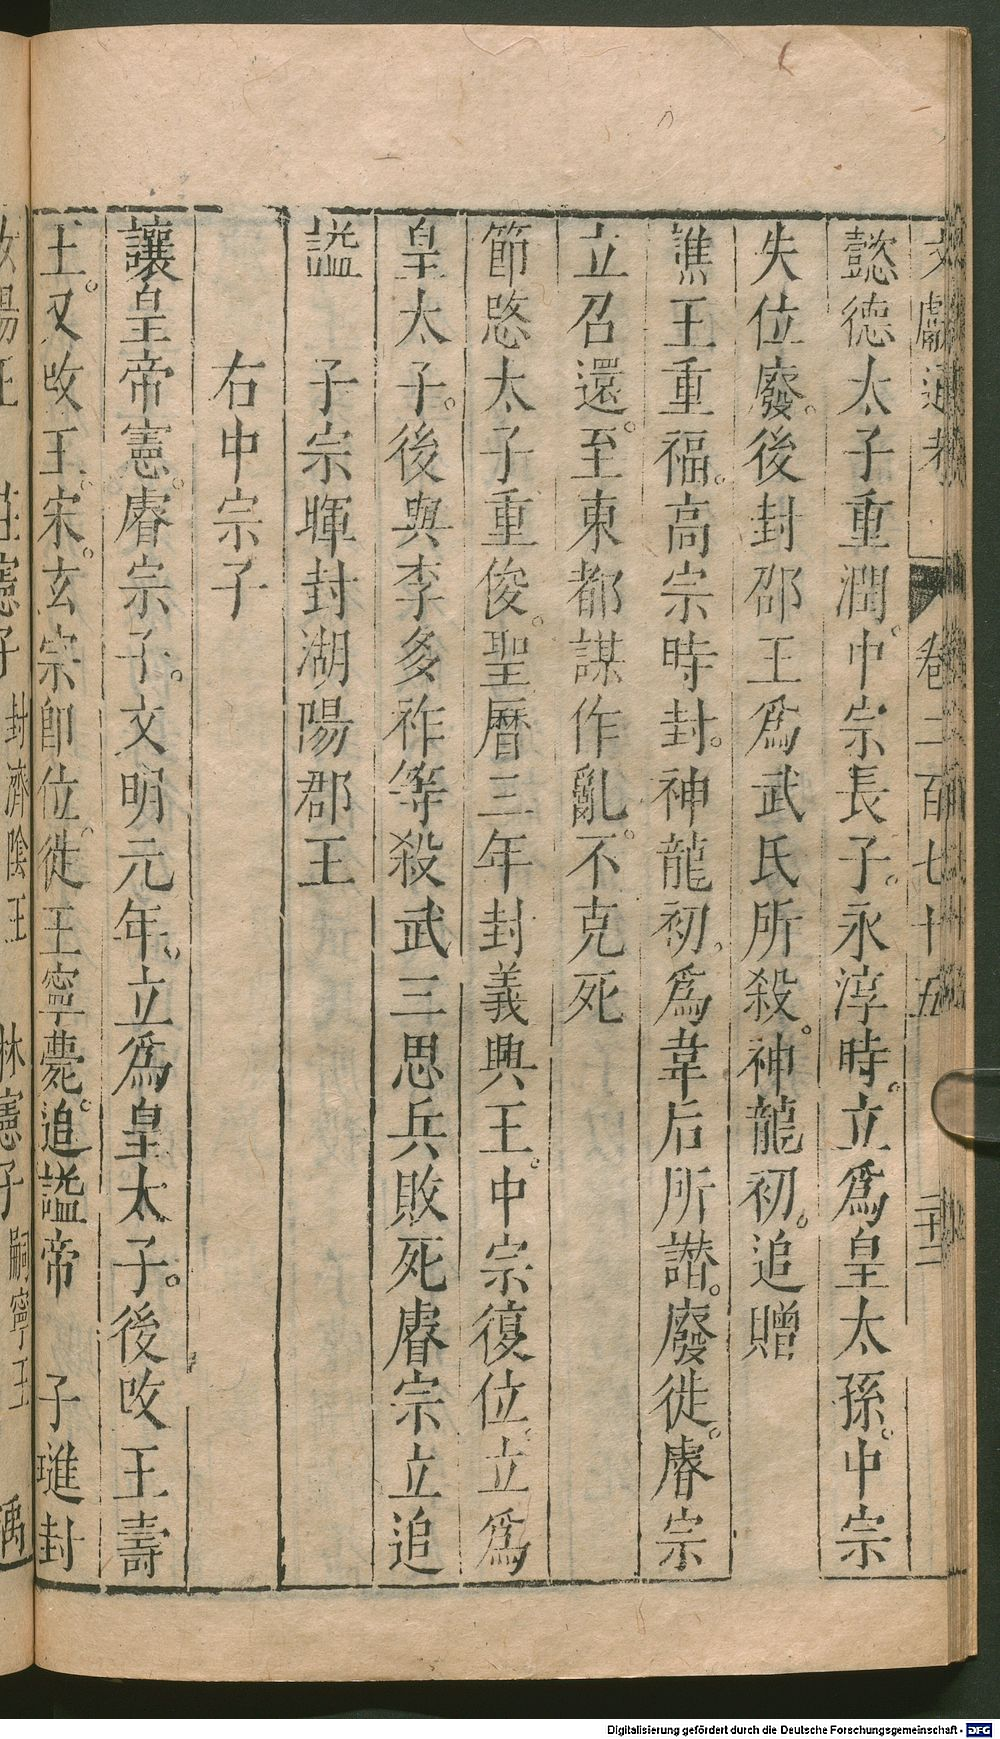 文獻通考 卷二百七十五
懿德太子重潤。中宗長子。永淳時。立爲皇太孫。中宗
失位廢。後封邵王爲武氏所殺。神龍初。追贈
譙王重福。高宗時封。神龍初。爲韋后所譖。廢徙。睿宗
立召還。至東都謀作亂。不克死
節愍太子重俊。聖曆三年封義興王。中宗復位。立爲
皇太子。後與李多祚等殺武三思兵敗死睿宗立追
謚 子宗暉封湖陽郡王
右中宗子
讓皇帝憲。睿宗子。文明元年。立爲皇太子。後改王壽
王。又改王宋。玄宗即位。徙王寧薨。追謚帝 子璡封
汝陽王 莊憲子封濟陰王 琳憲子嗣寧王 瑀
Digitalisierung gefördert durch die Deutsche Forschungsgemeinschaft - DFG